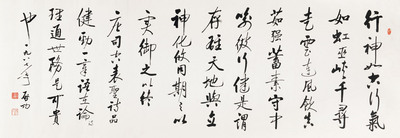 行神如空行氣
如虹巫峡千尋
走雲連風飲真
茹强蓄素守中
喻彼行健是謂
存雄天地與立
神化攸同期之以
實御之以終
唐司空表聖詩品
健勁一章語
理通世可貴
也 一九八六年 启功